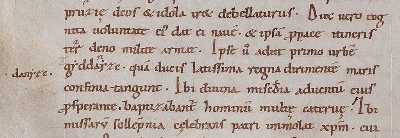 pruzie deos & idola iret debellaturus. Dux vero cog
nita voluntate ei dat ei navē. & ipsā p pace itineris
ter deno milite armat. Ipse ū adiit primo urbē
gyddanyzc. quā ducis latissima regna dirimentē maris
confinia tangunt. Ibi divina misedia adventū eius
psperante. baptizabant hominū multe caterve. Ibi
missarū sollēpnia celebrans patri immolat xpm. cui